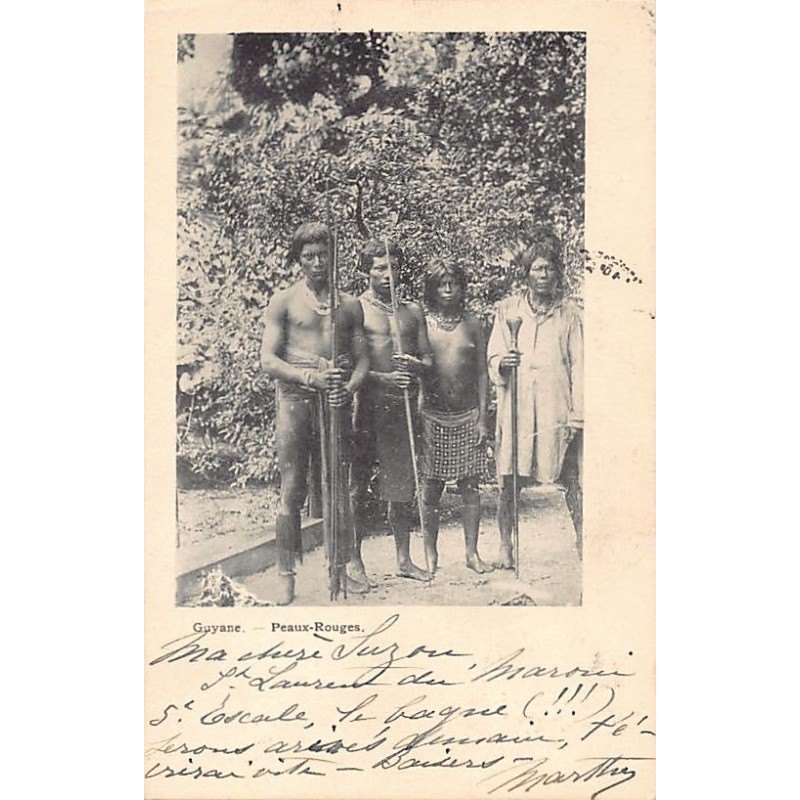 Guyane. — Peaux-Rouges.
Ma chère Suzon
St Laurent du Maroni
5e Escale, le bagne (!!!)
serons arrivés demain, t'é-
crirai vite — Baisers —
Marthe